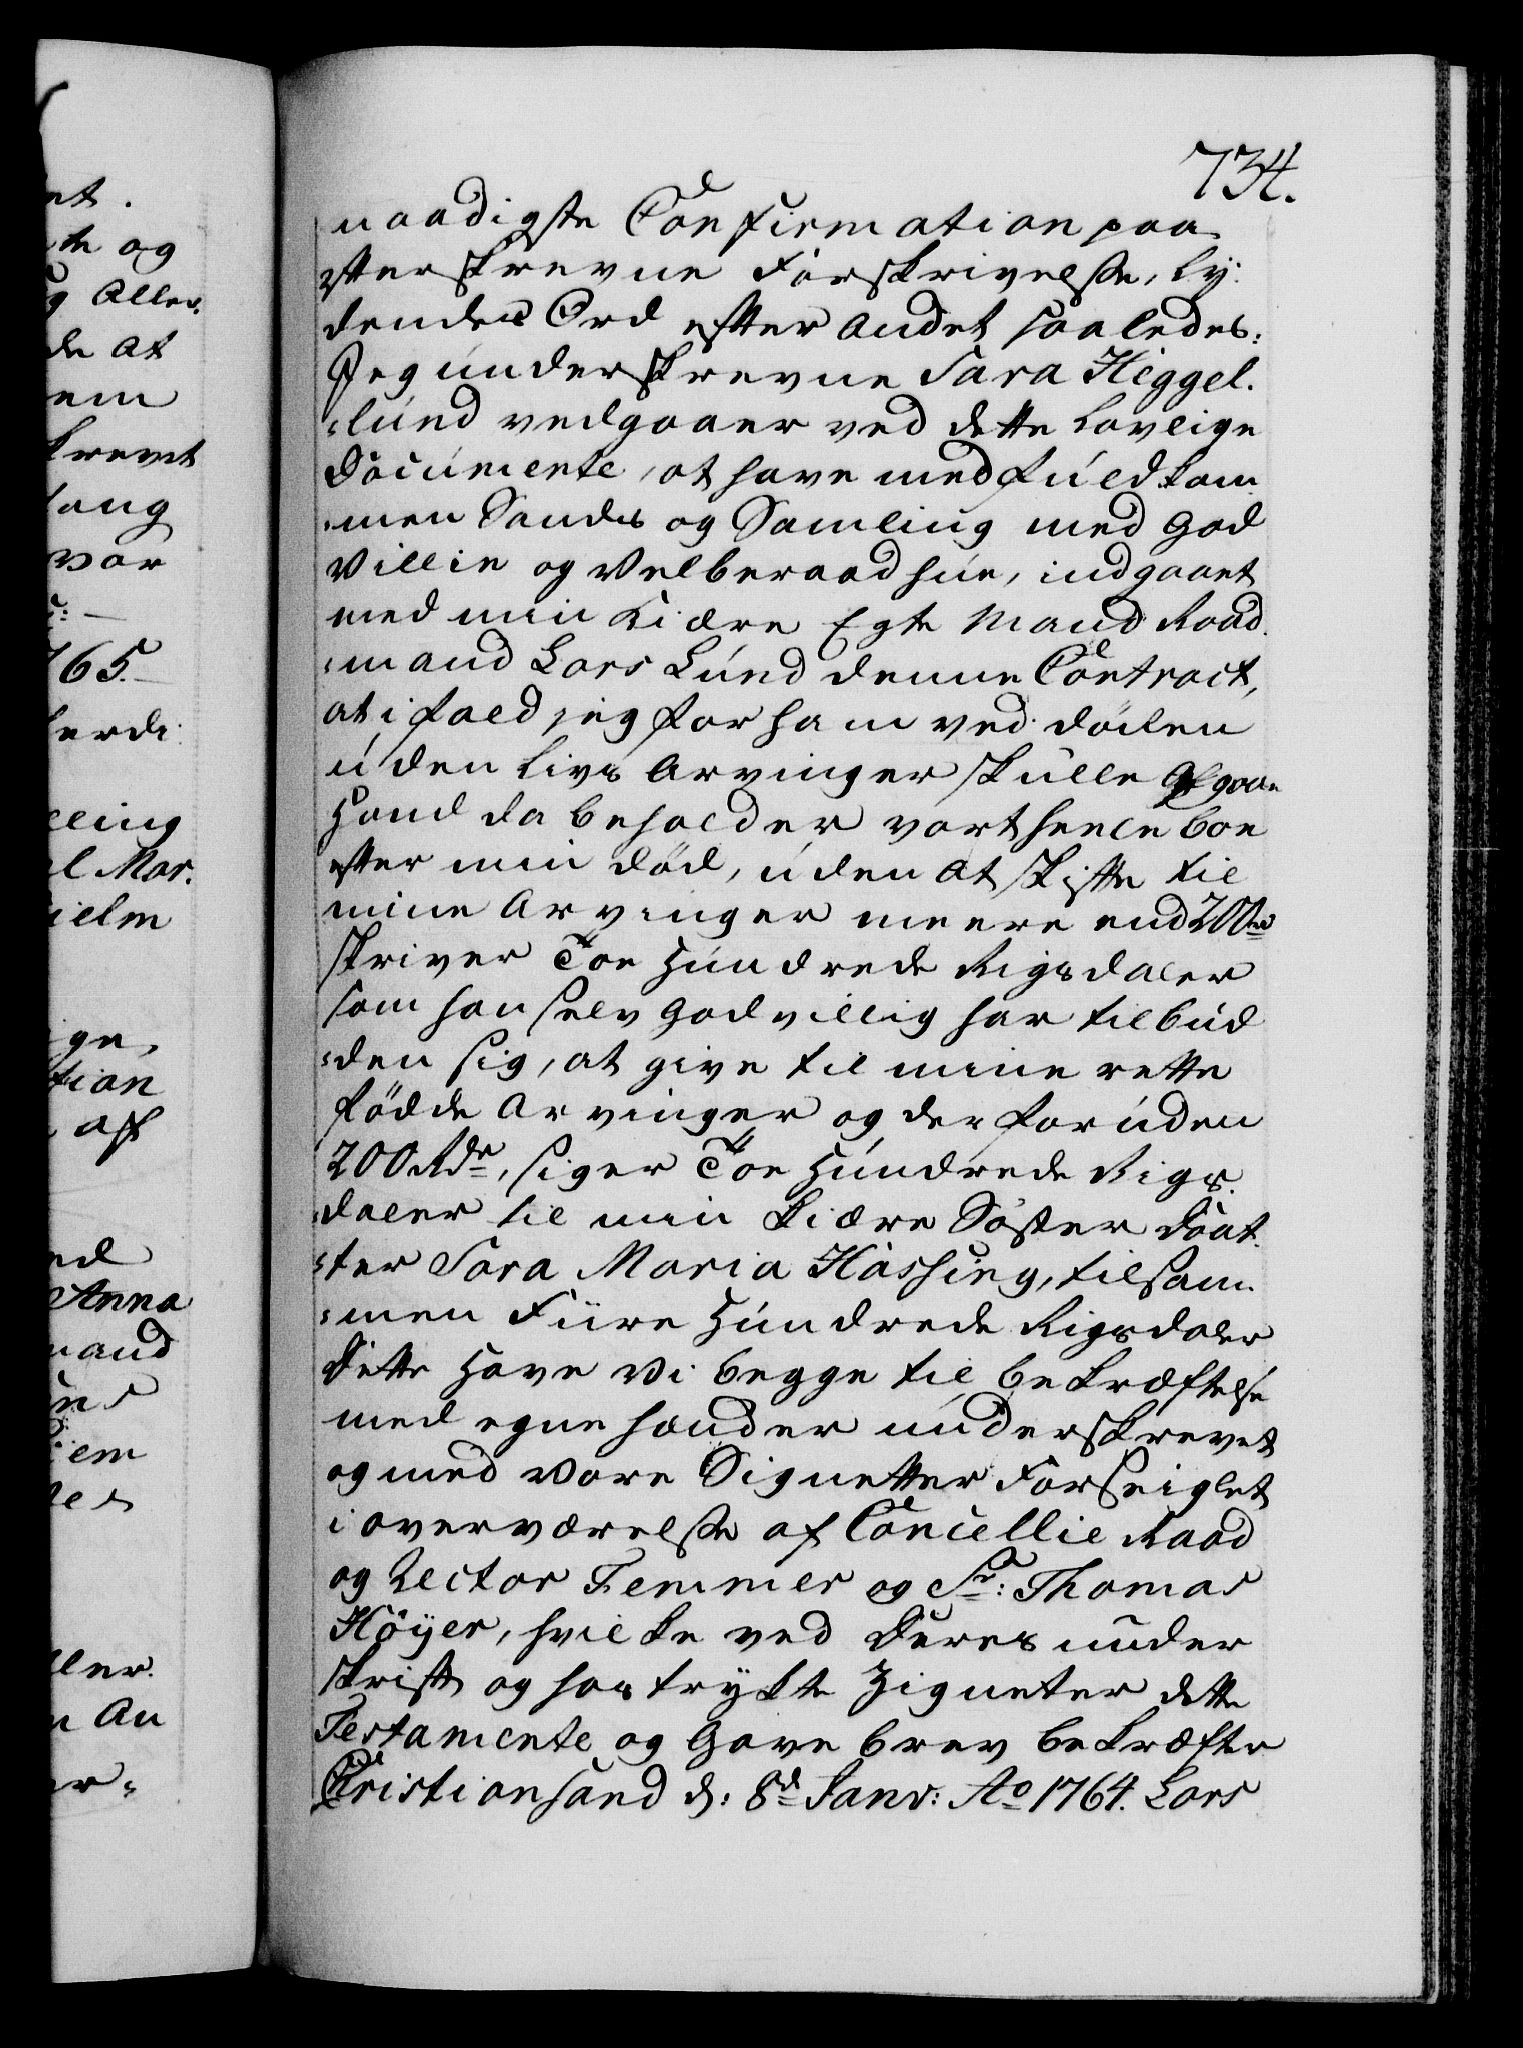 734.
naadigste Confirmation paa
efterskrevne Forskrivelse, ly:
dendes Ord efter andet saaledes:
Jeg underskrevne Sara Heggel.
:lund vedgaaer ved dette lovlige
Documente, at have med fuldkom
:men Sands og Samling med god
Villie og velberaad hue, indgaaet
med min kiære Egte Mand Raad.
:mand Lars Lund denne Contract,
at i fald jeg for ham ved döden
uden Livs Arvinger skulle afgaae
Hand da beholder vort heele boe
efter min död, uden at skifte til
mine Arvinger meere end 200 rd
skriver Toe Hundrede Rigsdaler
som han selv godvillig har tilbud
:den sig, at give til mine rette
födde Arvinger og der foruden
200 Rdr, siger Toe Hundrede Rigs.
:daler til min kiære Söster Daat.
:ter Sara Maria Hassing, tilsam.
:men Fiire Hundrede Rigsdaler
Dette Have Vi begge til bekræftelse
med egne hænder underskrevet
og med vore Signetter Forseiglet
i overværelse af Cancellie Raad
og Rector Femmer og Sr: Thomas
Höyer, hvilke ved Deres under
skrift og hostrykte Zigneter dette
Testamente og Gave brev bekræfter
Christiansand d: 8d Janv: Ao 1764. Lars
et.
te og
g Aller.
de at
em
krevet
lang
var
765.
ferdi
ling
l Mar.
ielm
ige,
tian
af
ed
Anna
mand
ens
iem
tes
ller.
n An
er: